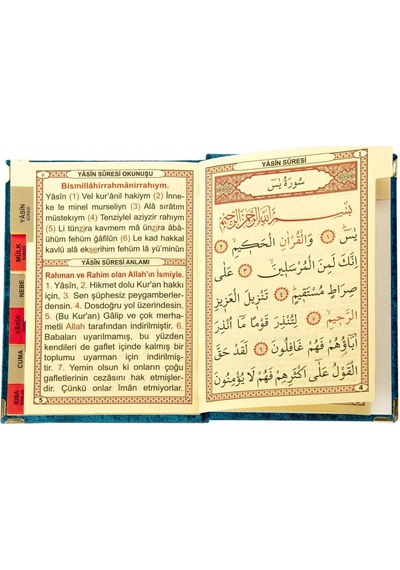 YÂSÎN SÛRESİ OKUNUŞU
Bismillâhirrahmânirrahıym.
Yâsîn (1) Vel kur'ânil hakiym (2) İnne-
ke le minel murseliyn (3) Alâ sırâtım
müstekıym (4) Tenziylel aziyzir rahıym
(5) Li tünzira kavmem mâ ünzira âbâ-
ühüm fehüm ğâfilûn (6) Le kad hakkal
kavlü alâ ekserihim fehüm lâ yü'minûn
YÂSÎN SÛRESİ ANLAMI
Rahman ve Rahim olan Allah'ın İsmiyle.
1. Yâsîn, 2. Hikmet dolu Kur'an hakkı
için, 3. Sen şüphesiz peygamberler-
densin. 4. Dosdoğru yol üzerindesin.
5. (Bu Kur'an) Gâlip ve çok merha-
metli Allah tarafından indirilmiştir. 6.
Babaları uyarılmamış, bu yüzden
kendileri de gaflet içinde kalmış bir
toplumu uyarman için indirilmiş-
tir. 7. Yemin olsun ki onların çoğu
gafletlerinin cezasını hak etmişler-
dir. Çünkü onlar îman etmiyorlar.
5
YÂSÎN
MÜLK
NEBE
VAKIA
CUMA
KISA
YÂSÎN SÛRESİ
٤
سُورَةُ يٰسٓ
بِسْمِ اللّٰهِ الرَّحْمٰنِ الرَّحِيمِ
يٰسٓ ﴿١﴾ وَالْقُرْاٰنِ الْحَكِيمِ ﴿٢﴾
اِنَّكَ لَمِنَ الْمُرْسَلِينَ ﴿٣﴾ عَلٰى
صِرَاطٍ مُسْتَقِيمٍ ﴿٤﴾ تَنْزِيلَ الْعَزِيزِ
الرَّحِيمِ ﴿٥﴾ لِتُنْذِرَ قَوْمًا مَٓا اُنْذِرَ
اٰبَٓاؤُهُمْ فَهُمْ غَافِلُونَ ﴿٦﴾ لَقَدْ حَقَّ
الْقَوْلُ عَلٰٓى اَكْثَرِهِمْ فَهُمْ لَا يُؤْمِنُونَ
4